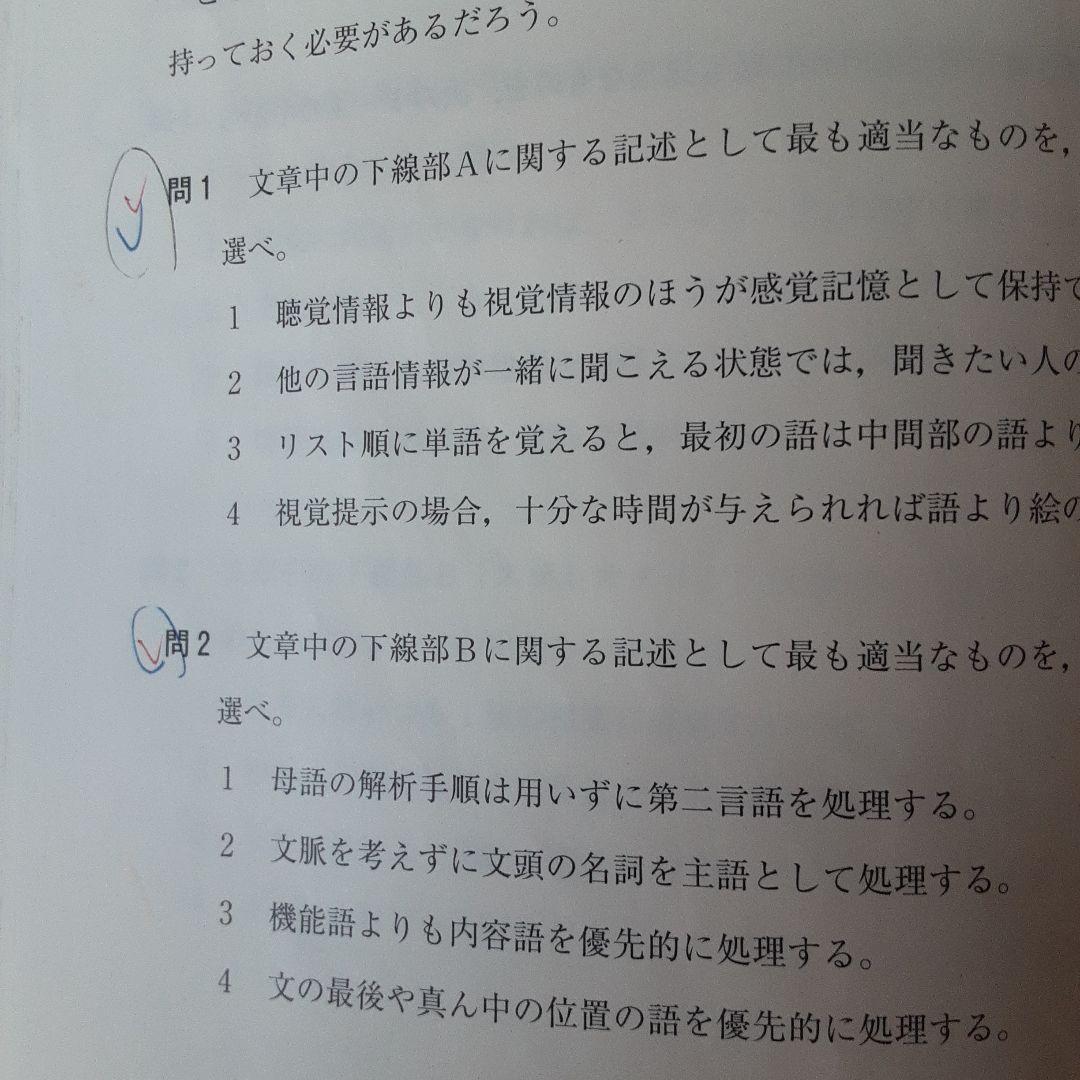 持っておく必要があるだろう。
問1 文章中の下線部Aに関する記述として最も適当なものを,
選べ。
1 聴覚情報よりも視覚情報のほうが感覚記憶として保持
2 他の言語情報が一緒に聞こえる状態では,聞きたい人の
3 リスト順に単語を覚えると,最初の語は中間部の語より
4 視覚提示の場合,十分な時間が与えられれば語より絵の
問2 文章中の下線部Bに関する記述として最も適当なものを,
選べ。
1 母語の解析手順は用いずに第二言語を処理する。
2 文脈を考えずに文頭の名詞を主語として処理する。
3 機能語よりも内容語を優先的に処理する。
4 文の最後や真ん中の位置の語を優先的に処理する。